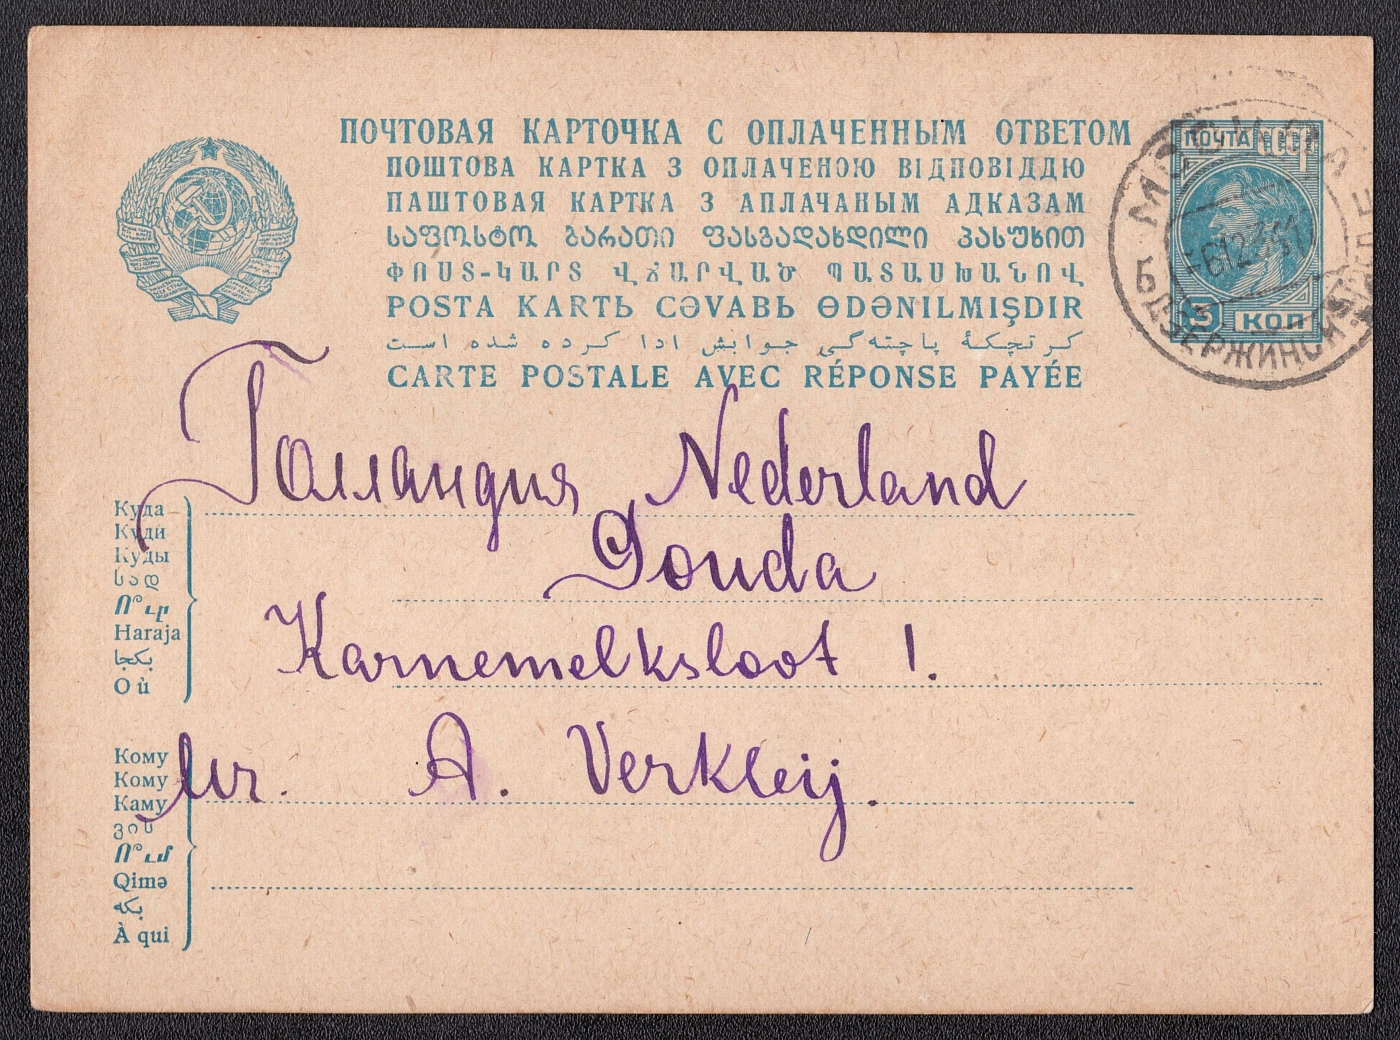 ПОЧТОВАЯ КАРТОЧКА С ОПЛАЧЕННЫМ ОТВЕТОМ
ПОШТОВА КАРТКА З ОПЛАЧЕНОЮ ВІДПОВІДДЮ
ПАШТОВАЯ КАРТКА З АПЛАЧАНЫМ АДКАЗАМ
ᲡᲐᲤᲝᲡᲢᲝ ᲑᲐᲠᲐᲗᲘ ᲤᲐᲡᲒᲐᲓᲐᲮᲓᲘᲚᲘ ᲞᲐᲡᲣᲮᲘᲗ
ՓՈՍՏ-ԿԱՐՏ ՎՃԱՐՎԱԾ ՊԱՏԱՍԽԱՆՈՎ
POSTA KARTЬ CƏVABЬ ӨDƏNILMIŞDIR
كرتچكۀ پاچته‌گی جوابش ادا كرده شده است
CARTE POSTALE AVEC RÉPONSE PAYÉE
ПОЧТА СССР
5 КОП
МОСКВА
6 12 36
Голландия Nederland
Gouda
Karnemelksloot 1.
Mr. A. Verkleij.
Куда
Куди
Куды
სად
Ո՞ւր
Haraja
بكجا
Où
Кому
Кому
Каму
ვის
Ո՞ւմ
Qimə
بكه
À qui